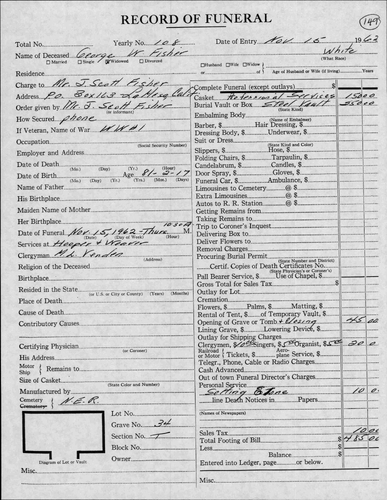 RECORD OF FUNERAL
149
Total No. Yearly No. 108 Date of Entry Nov 15 1962
Name of Deceased George W. Fisher White
(What Race)
Married Single Widowed Divorced Husband Wife Age of Husband or Wife (if living) Years
Residence
Charge to Mr. J. Scott Fisher
Address P.O. Box 163 La Mesa Calif
Order given by Mr. J. Scott Fisher
(or informant)
How Secured phone
If Veteran, Name of War WW1
Occupation
(Social Security Number)
Employer and Address
Date of Death
(Mo.) (Day) (Yr.) (Hour)
Date of Birth Age 81-2-17
(Mo.) (Day) (Yr.) (Yrs.) (Mo.) (Days)
Name of Father
His Birthplace
Maiden Name of Mother
Her Birthplace
Date of Funeral Nov 15, 1962 - Thurs 10:30 A M.
(Date) (Day of Week) (Hour)
Services at Hooper + Weaver
Clergyman
(Address)
Religion of the Deceased
Birthplace
Resided in the State
(or U.S. or City or County) (Years) (Months)
Place of Death
Cause of Death
Contributory Causes
Certifying Physician
(or Coroner)
His Address
Motor Ship Remains to
Size of Casket
(State Color and Number)
Manufactured by
Cemetery
Crematory N.E.R.
Lot No.
Grave No. 34
Section No. T
Block No.
Owner
Diagram of Lot or Vault
Misc.
Complete Funeral (except outlays) $
Casket Professional Services 150 00
Burial Vault or Box Steel Vault 250 00
(State Kind)
Embalming Body
Barber, $ Hair Dressing, $
Dressing Body, $ Underwear, $
Suit or Dress
(State Kind and Color)
Slippers, $ Hose, $
Folding Chairs, $ Tarpaulin, $
Candelabrum, $ Candles, $
Door Spray, $ Gloves, $
Funeral Car, $ Ambulance, $
Limousines to Cemetery @ $
Extra Limousines @ $
Autos to R. R. Station @ $
Getting Remains from
Taking Remains to
Trip to Coroner's Inquest
Delivering Box to
Deliver Flowers to
Removal Charges
Procuring Burial Permit
(State Number and District)
Certif. Copies of Death Certificates No.
(State Physician's or Coroner's)
Pall Bearer Service, $ Use of Chapel, $
Gross Total for Sales Tax $
Outlay for Lot
Cremation
Flowers, $ Palms, $ Matting, $
Rental of Tent, $ of Temporary Vault, $
Opening of Grave or Tomb + 45 00
Lining Grave, $ Lowering Device, $
Outlay for Shipping Charges
Clergymen, $10.00 Singers, $5.00 Organist, $5.00 20 0
Railroad or Motor Tickets, $ Aeroplane Service, $
Telegr., Phone, Cable or Radio Charges
Cash Advanced
Out of town Funeral Director's Charges
Personal Service
Setting Stone 10 0
line Death Notices in Papers
(Names of Newspapers)
Sales Tax 10 0
Total Footing of Bill $ 485 00
Less
Balance $
Entered into Ledger, page or below.
Misc.